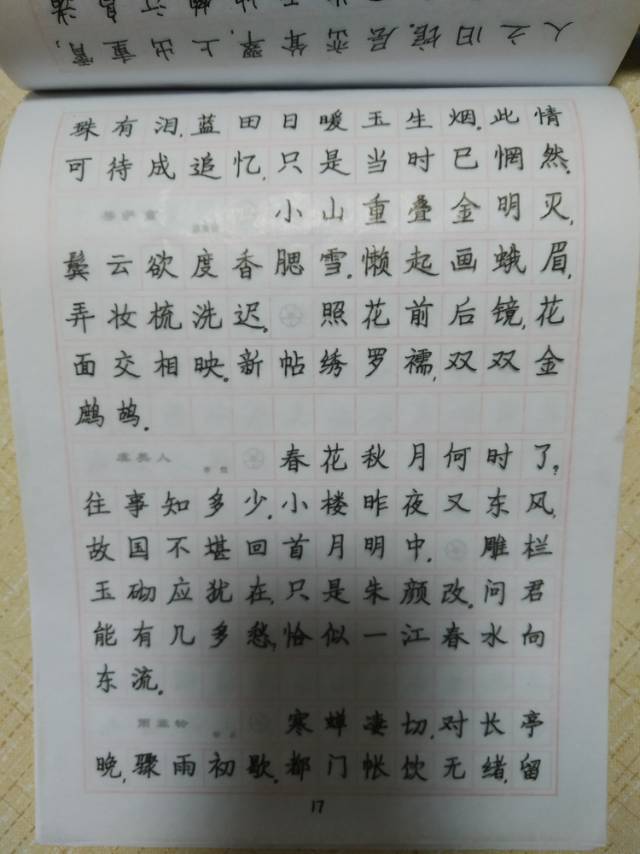 人之旧馆。层峦耸翠,上出重霄;
珠有泪,蓝田日暖玉生烟。此情
可待成追忆,只是当时已惘然。
菩萨蛮 小山重叠金明灭,
鬓云欲度香腮雪。懒起画蛾眉,
弄妆梳洗迟。照花前后镜,花
面交相映。新帖绣罗襦,双双金
鹧鸪。
虞美人 李煜 春花秋月何时了?
往事知多少。小楼昨夜又东风,
故国不堪回首月明中。雕栏
玉砌应犹在,只是朱颜改。问君
能有几多愁,恰似一江春水向
东流。
雨霖铃 寒蝉凄切,对长亭
晚,骤雨初歇。都门帐饮无绪,留
17